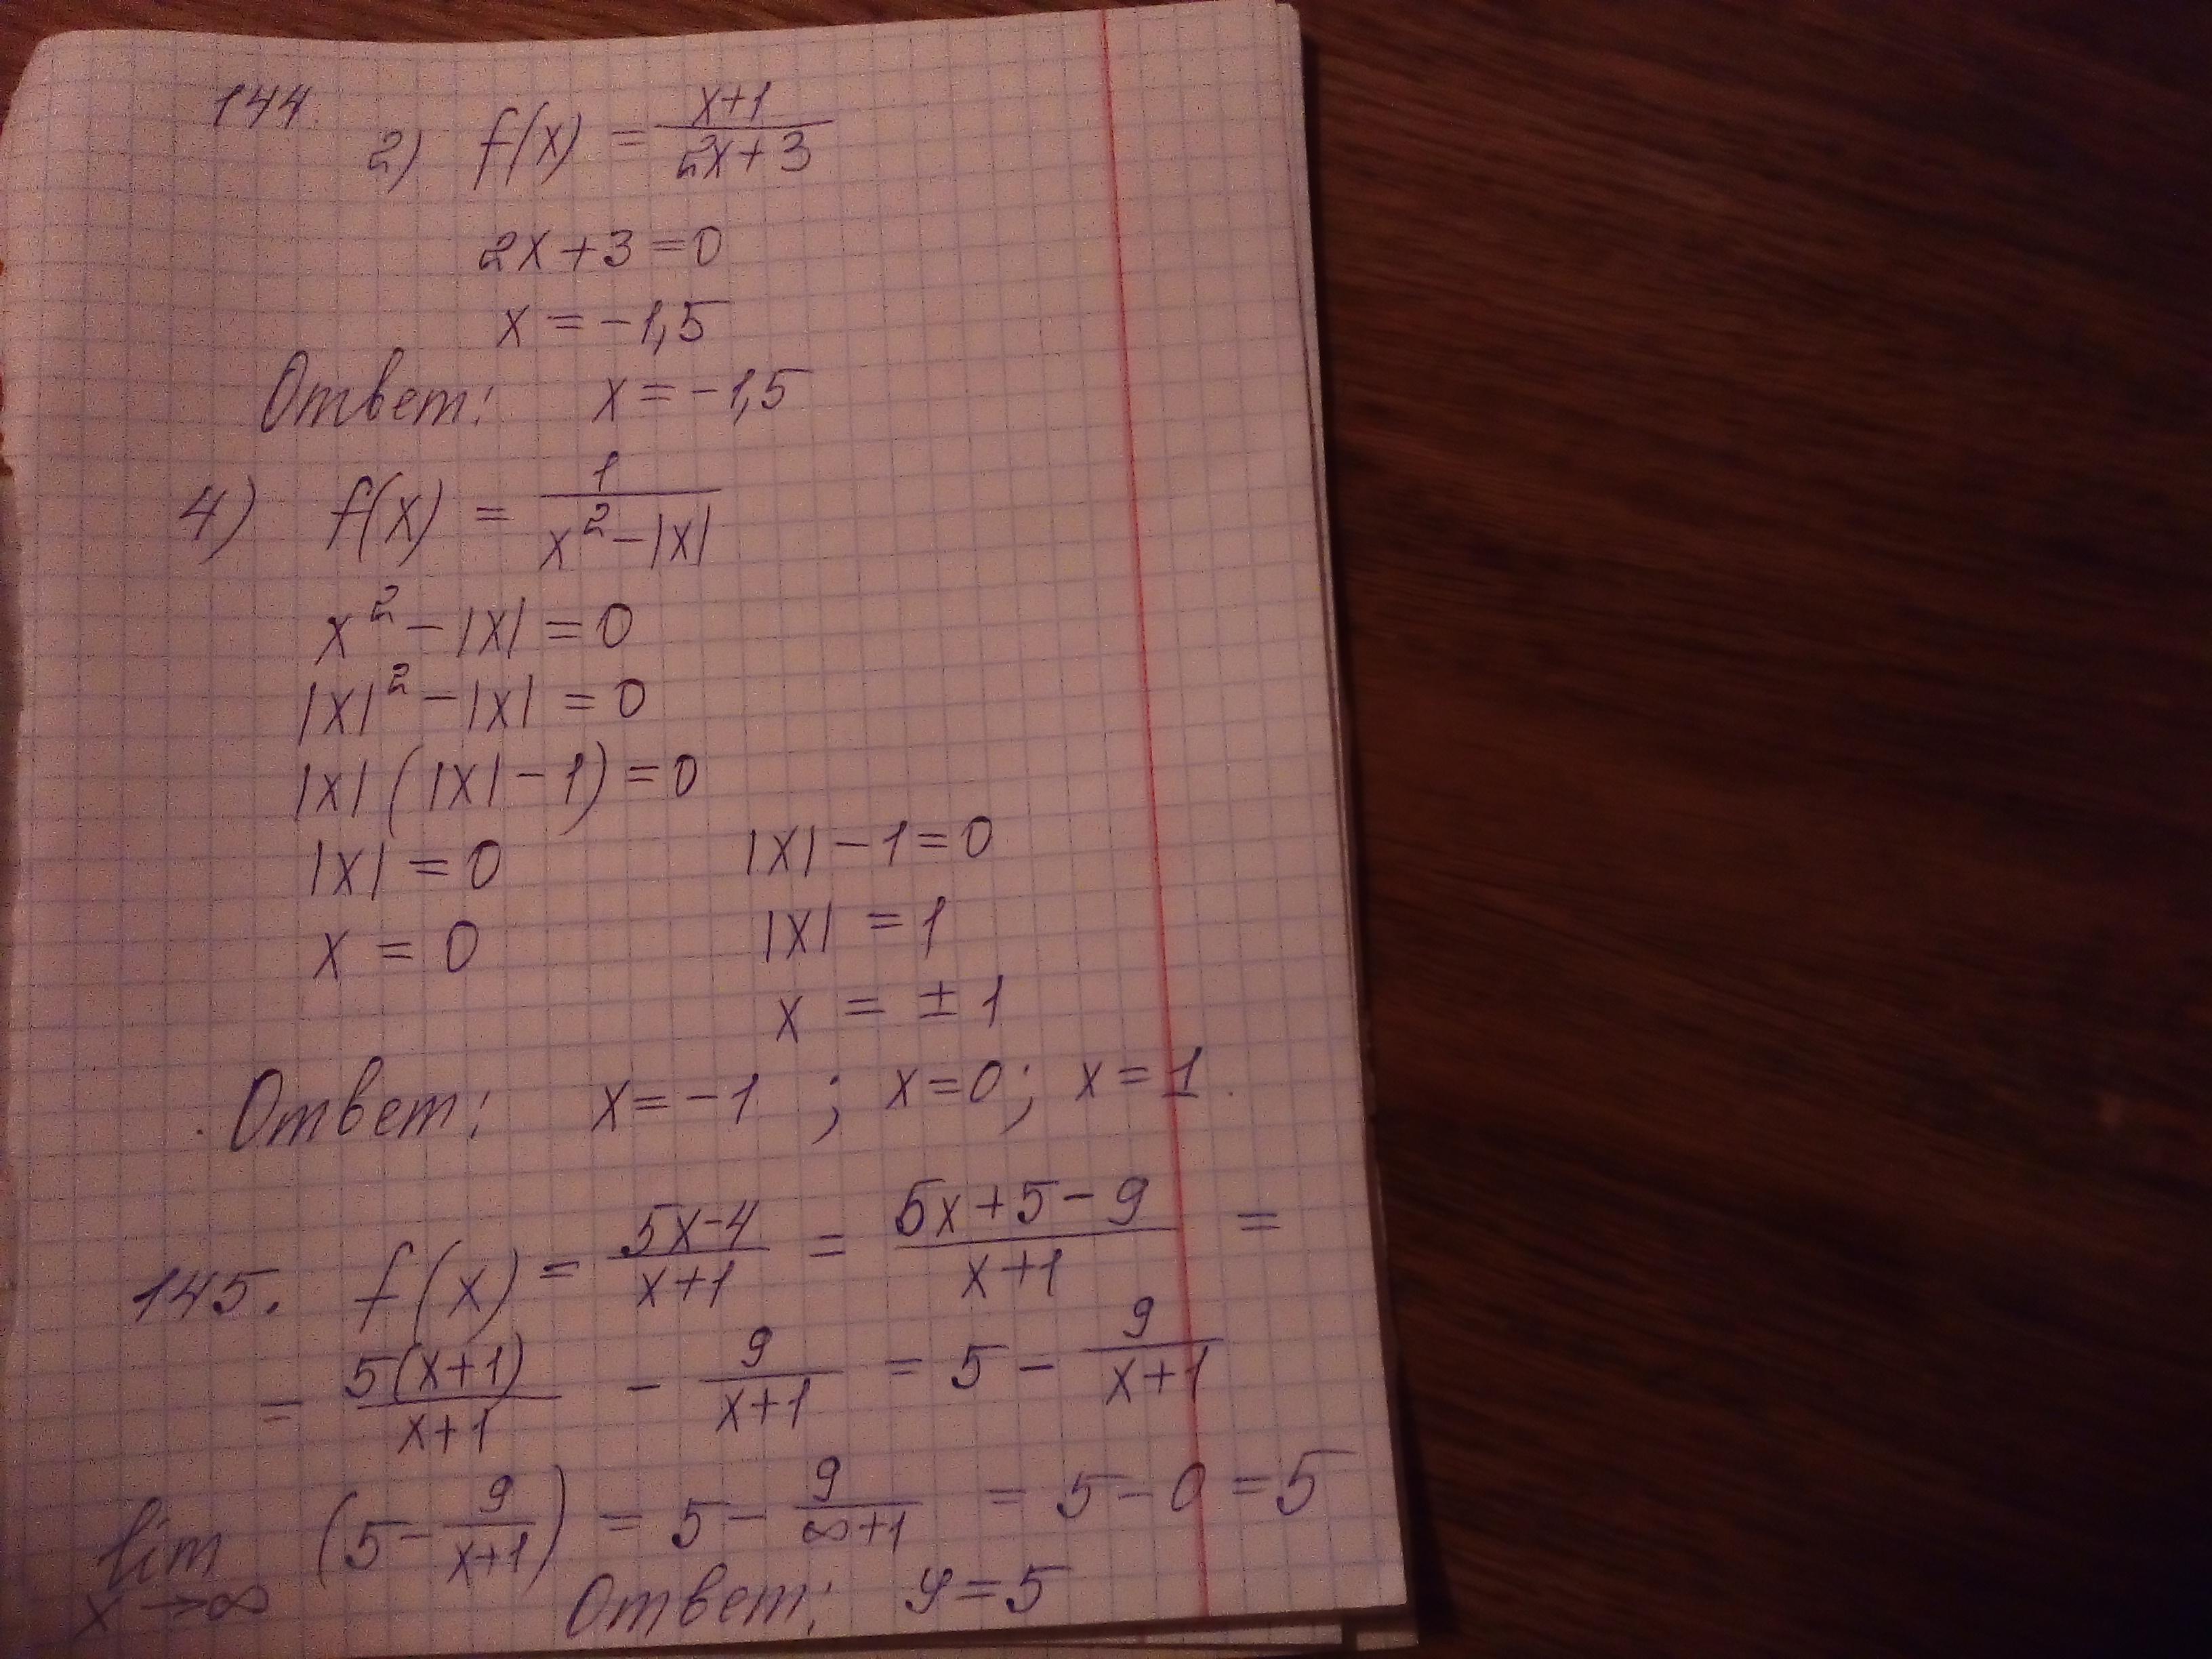 144.
2) f(x) = (x+1)/(2x+3)
2x+3=0
x = -1,5
Ответ: x = -1,5
4) f(x) = 1/(x²-|x|)
x²-|x| = 0
|x|²-|x| = 0
|x|(|x|-1) = 0
|x| = 0 |x|-1=0
x = 0 |x| = 1
x = ±1
Ответ: x=-1 ; x=0; x=1.
145. f(x) = (5x-4)/(x+1) = (5x+5-9)/(x+1) =
= 5(x+1)/(x+1) - 9/(x+1) = 5 - 9/(x+1)
lim x→∞ (5 - 9/(x+1)) = 5 - 9/(∞+1) = 5-0=5
Ответ: y=5